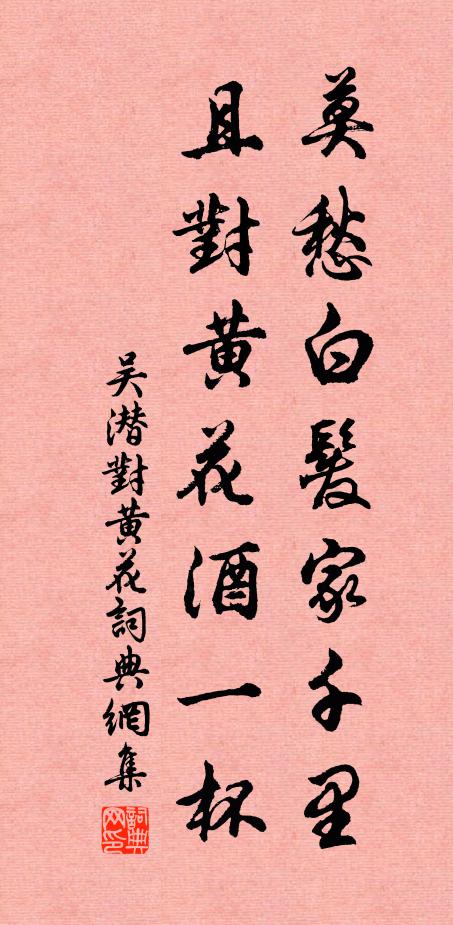 莫愁白髮家千里
且對黄花酒一杯
吴潜對黄花詞典網集
詞典网印